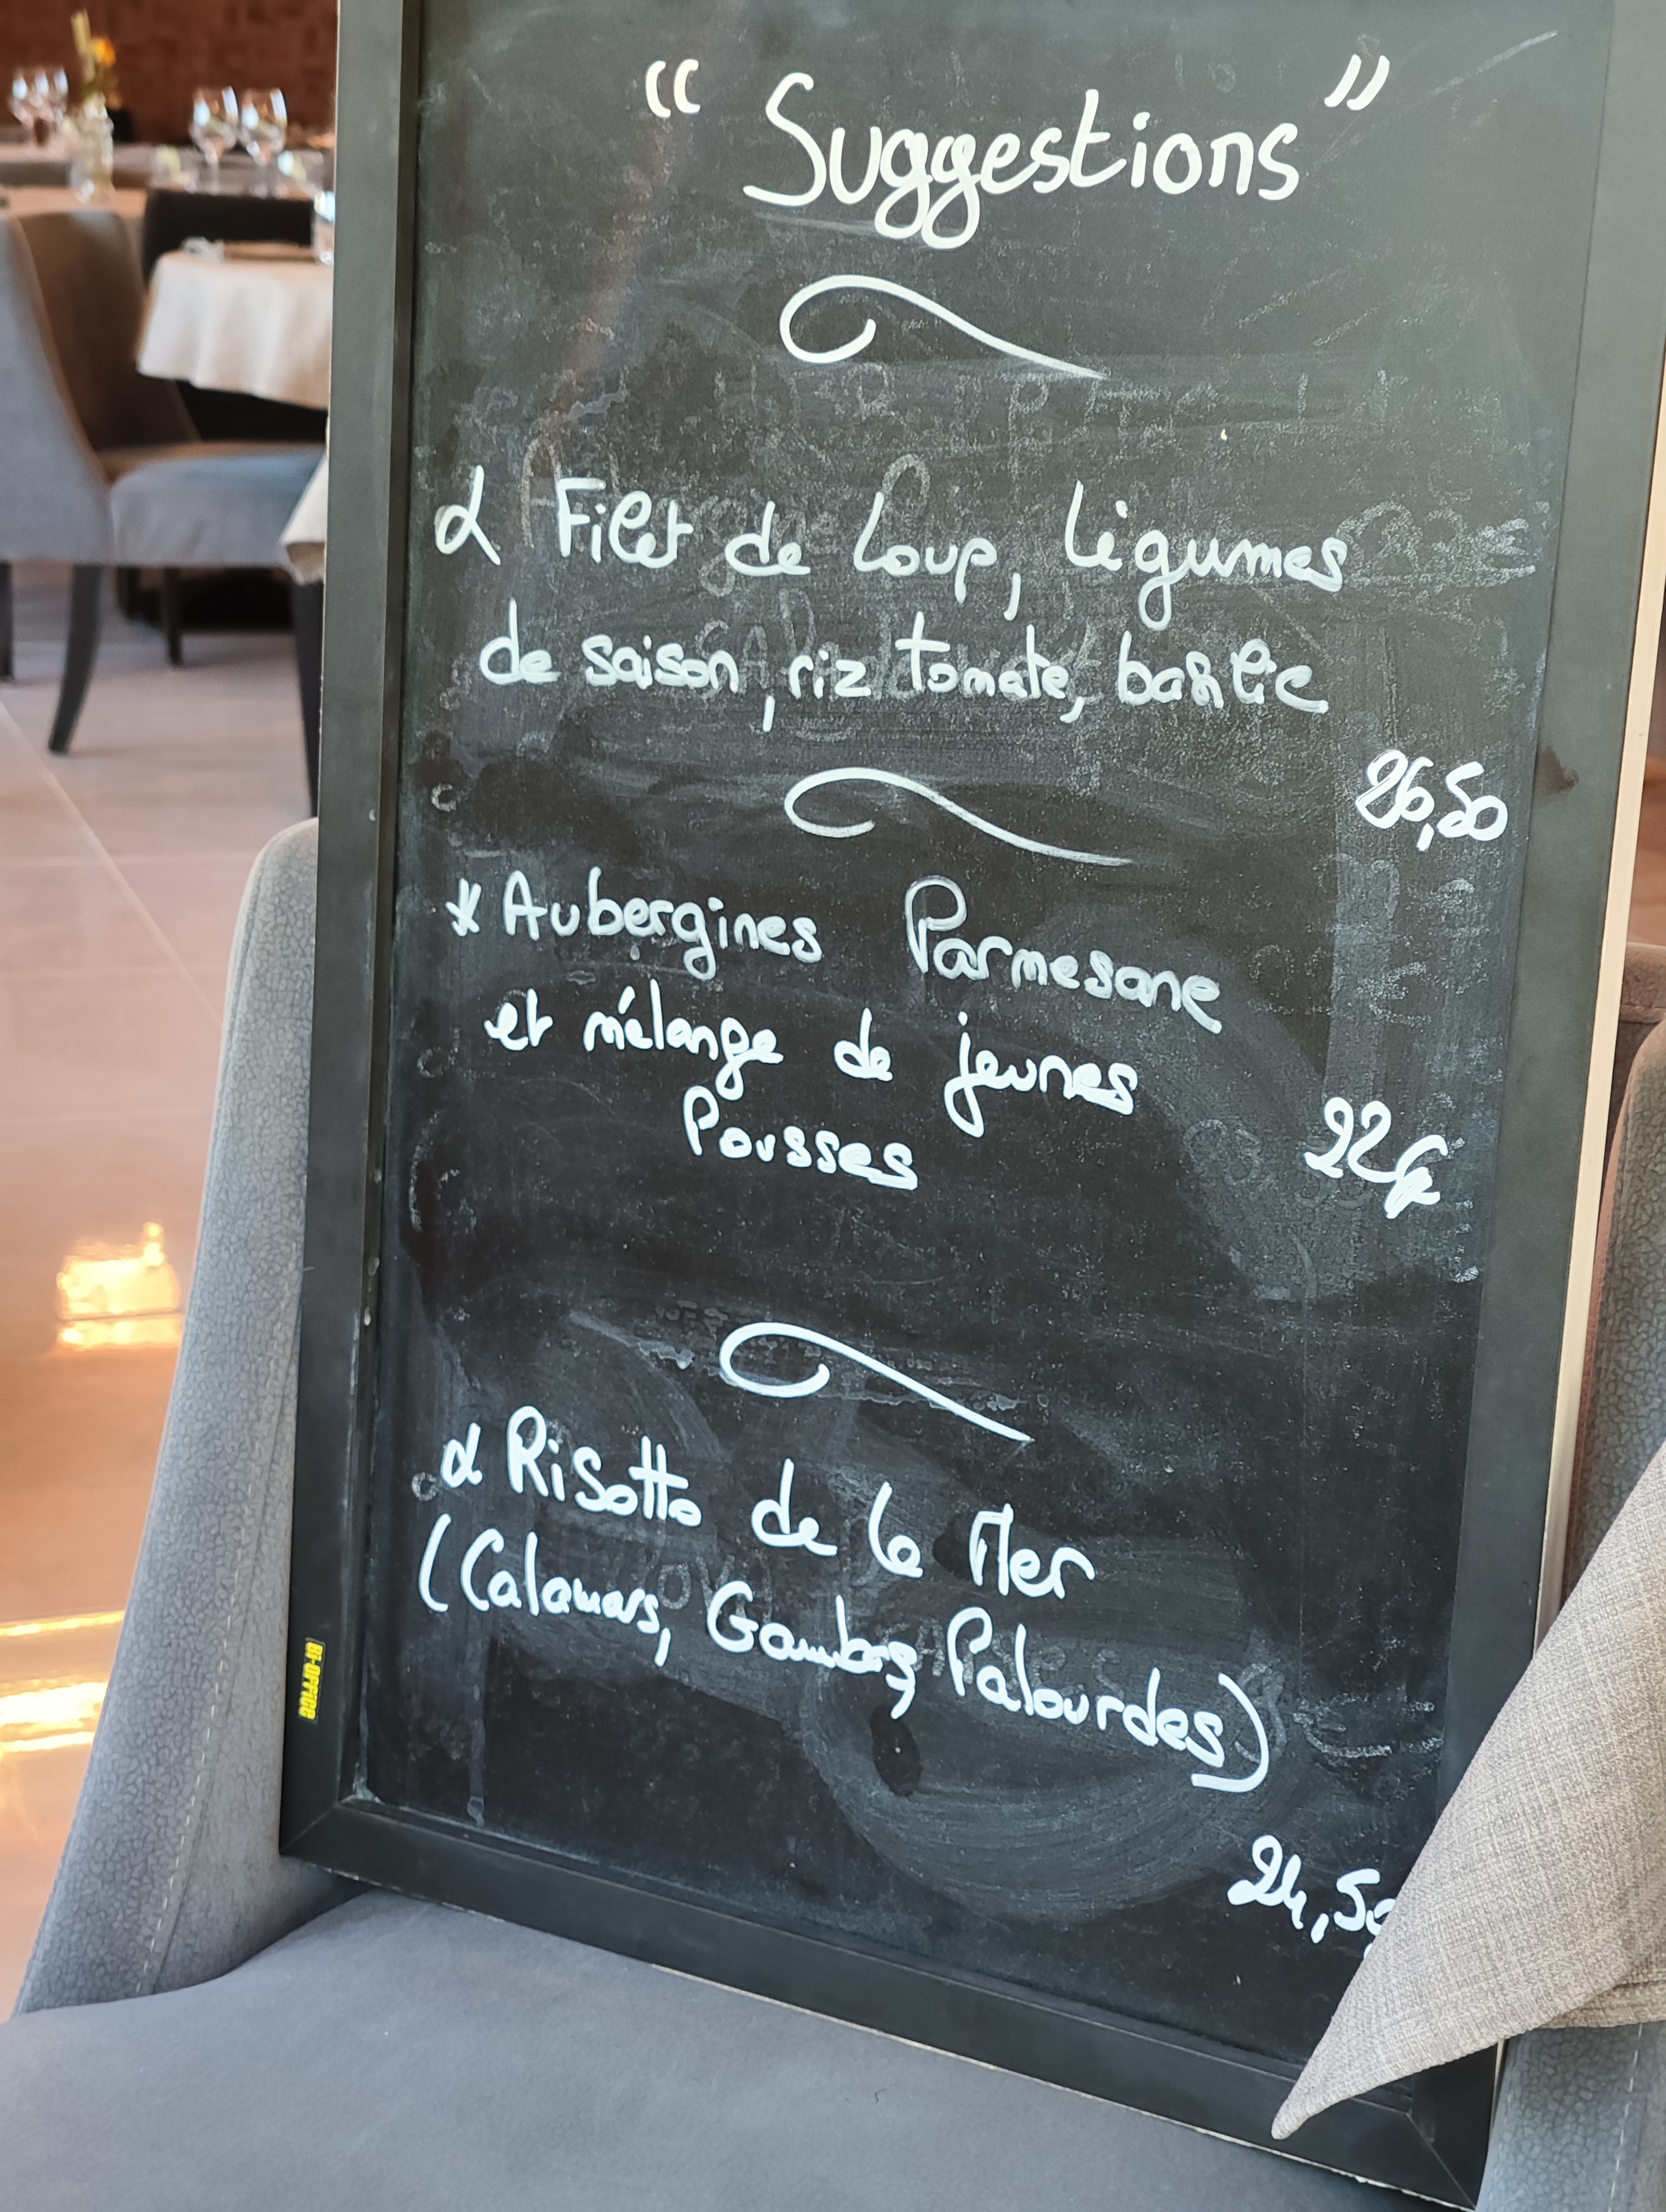 " Suggestions "
Filet de Loup, légumes
de saison, riz tomate, basilic
26,50
* Aubergines Parmesane
et mélange de jeunes
Pousses
22€
Risotto de la Mer
(Calamars, Gambas, Palourdes)
24,50
BI-OFFICE